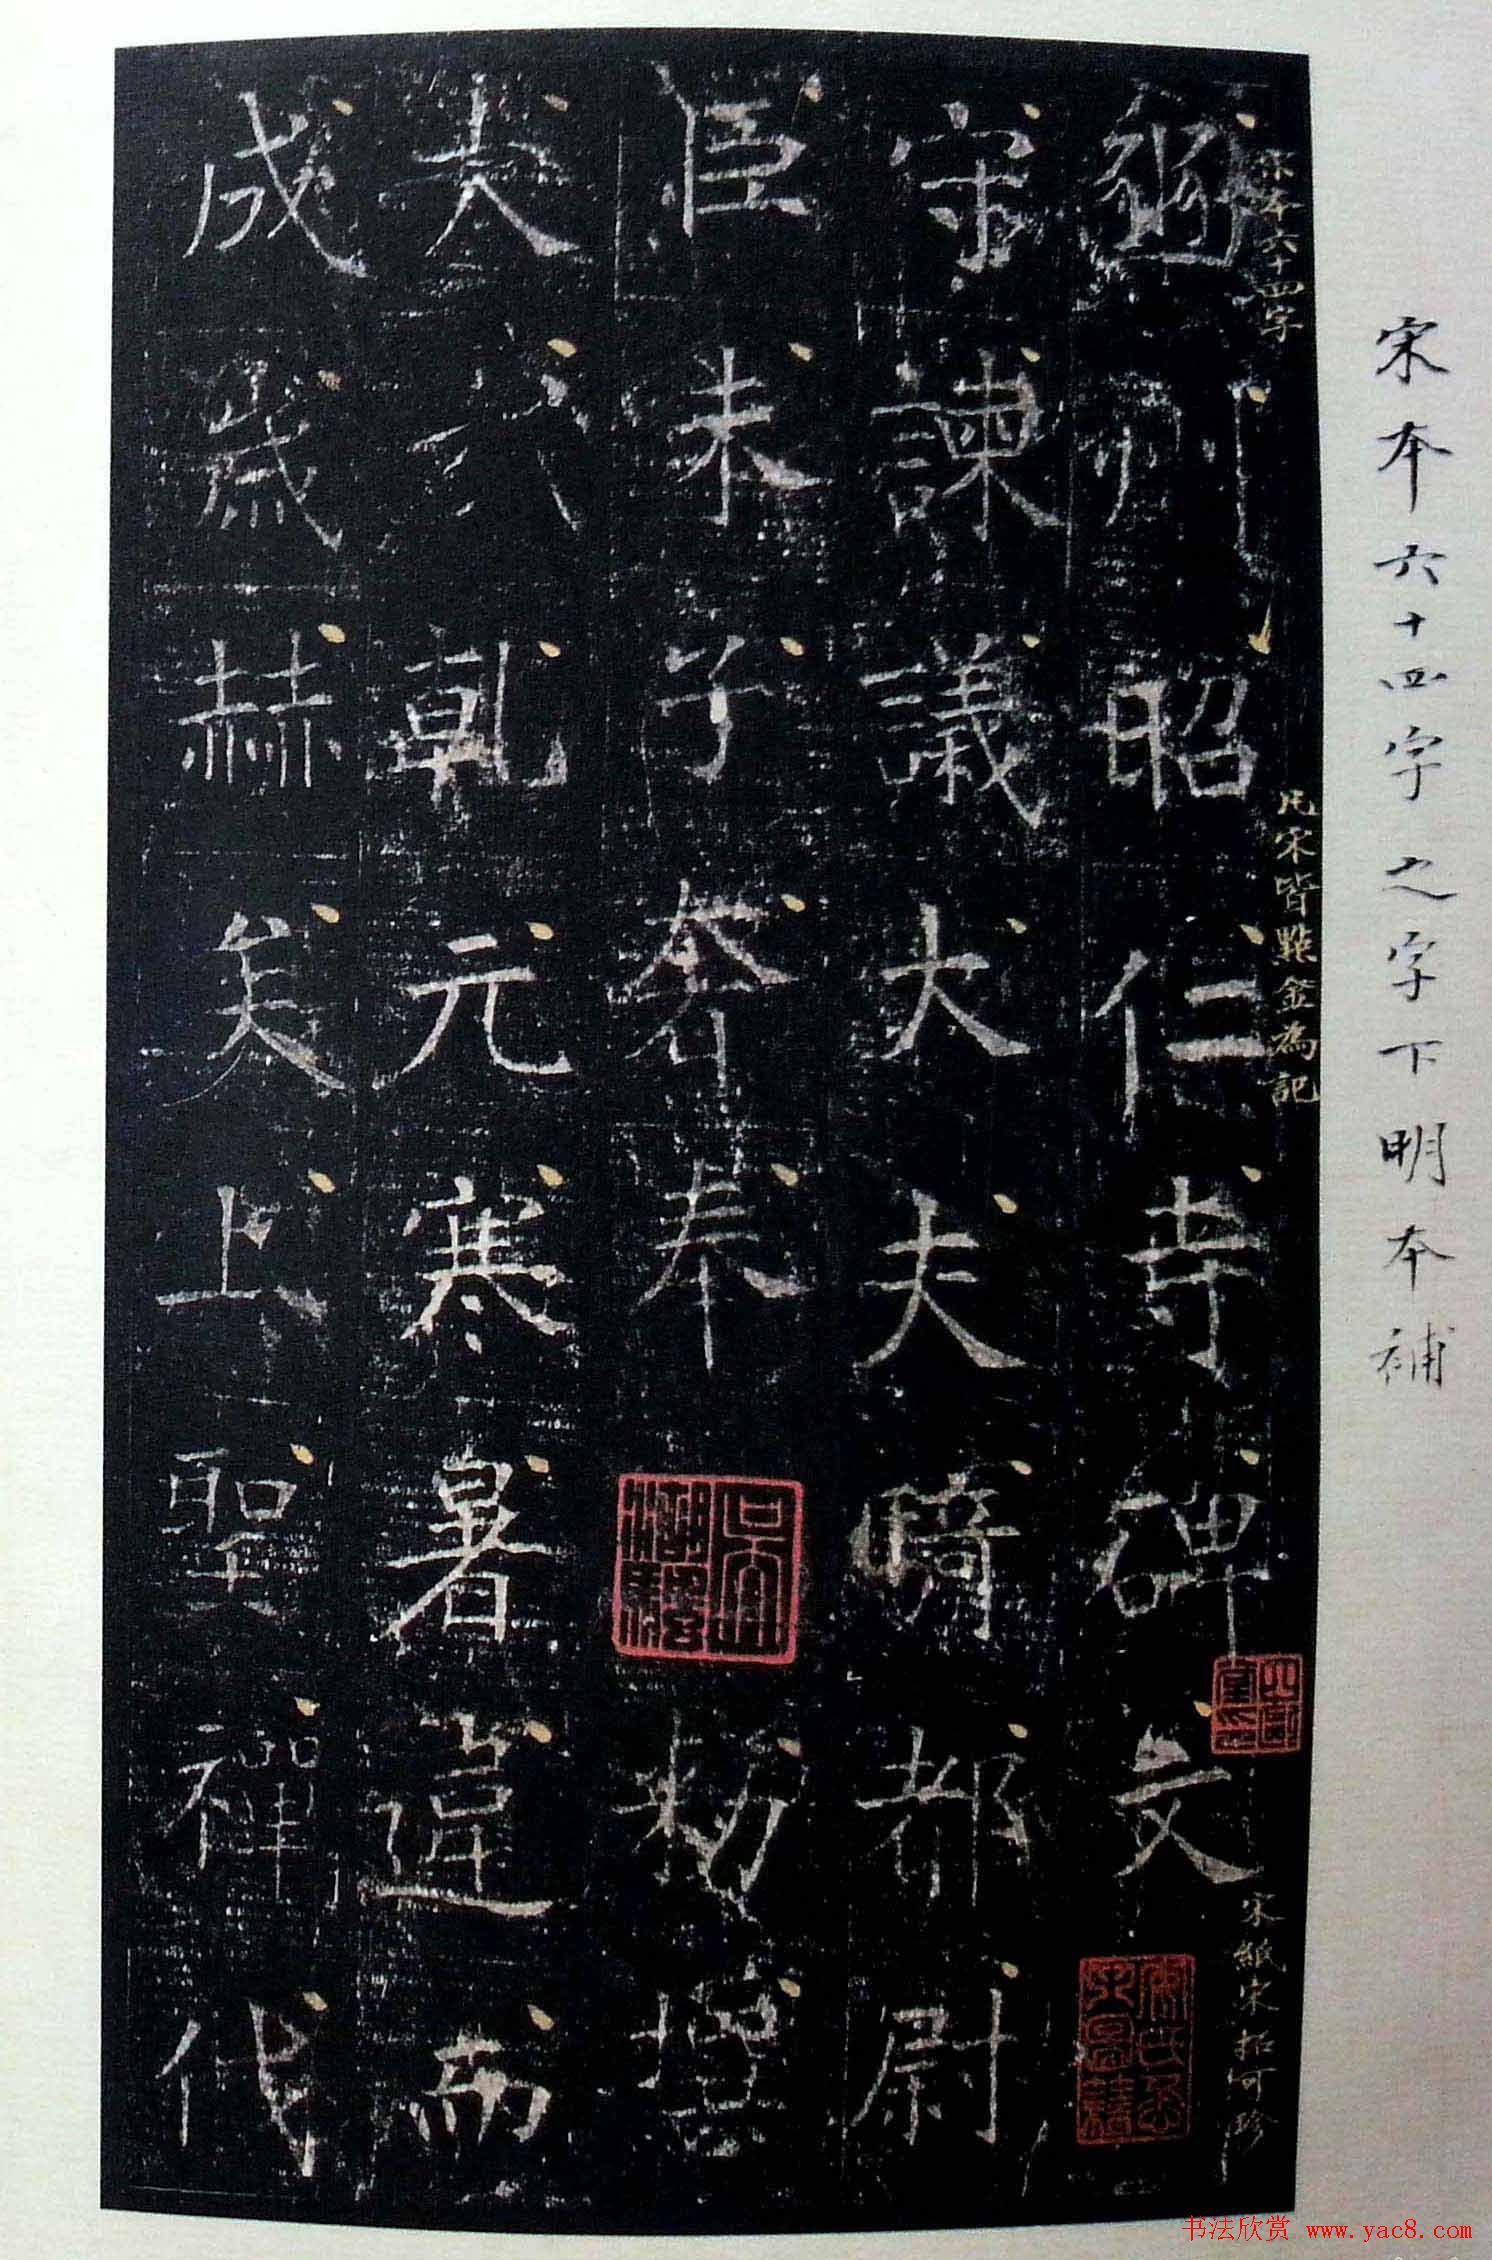 宋本六十四字之字下明本補
宋本六十四字
凡宋皆點金為記
宋紙宋拓可珍
豳州昭仁寺碑文
守諫議大夫騎都尉
臣朱子奢奉勑撰
乾元寒暑違而
成歲赫矣上聖禪代
书法欣赏 www.yac8.com